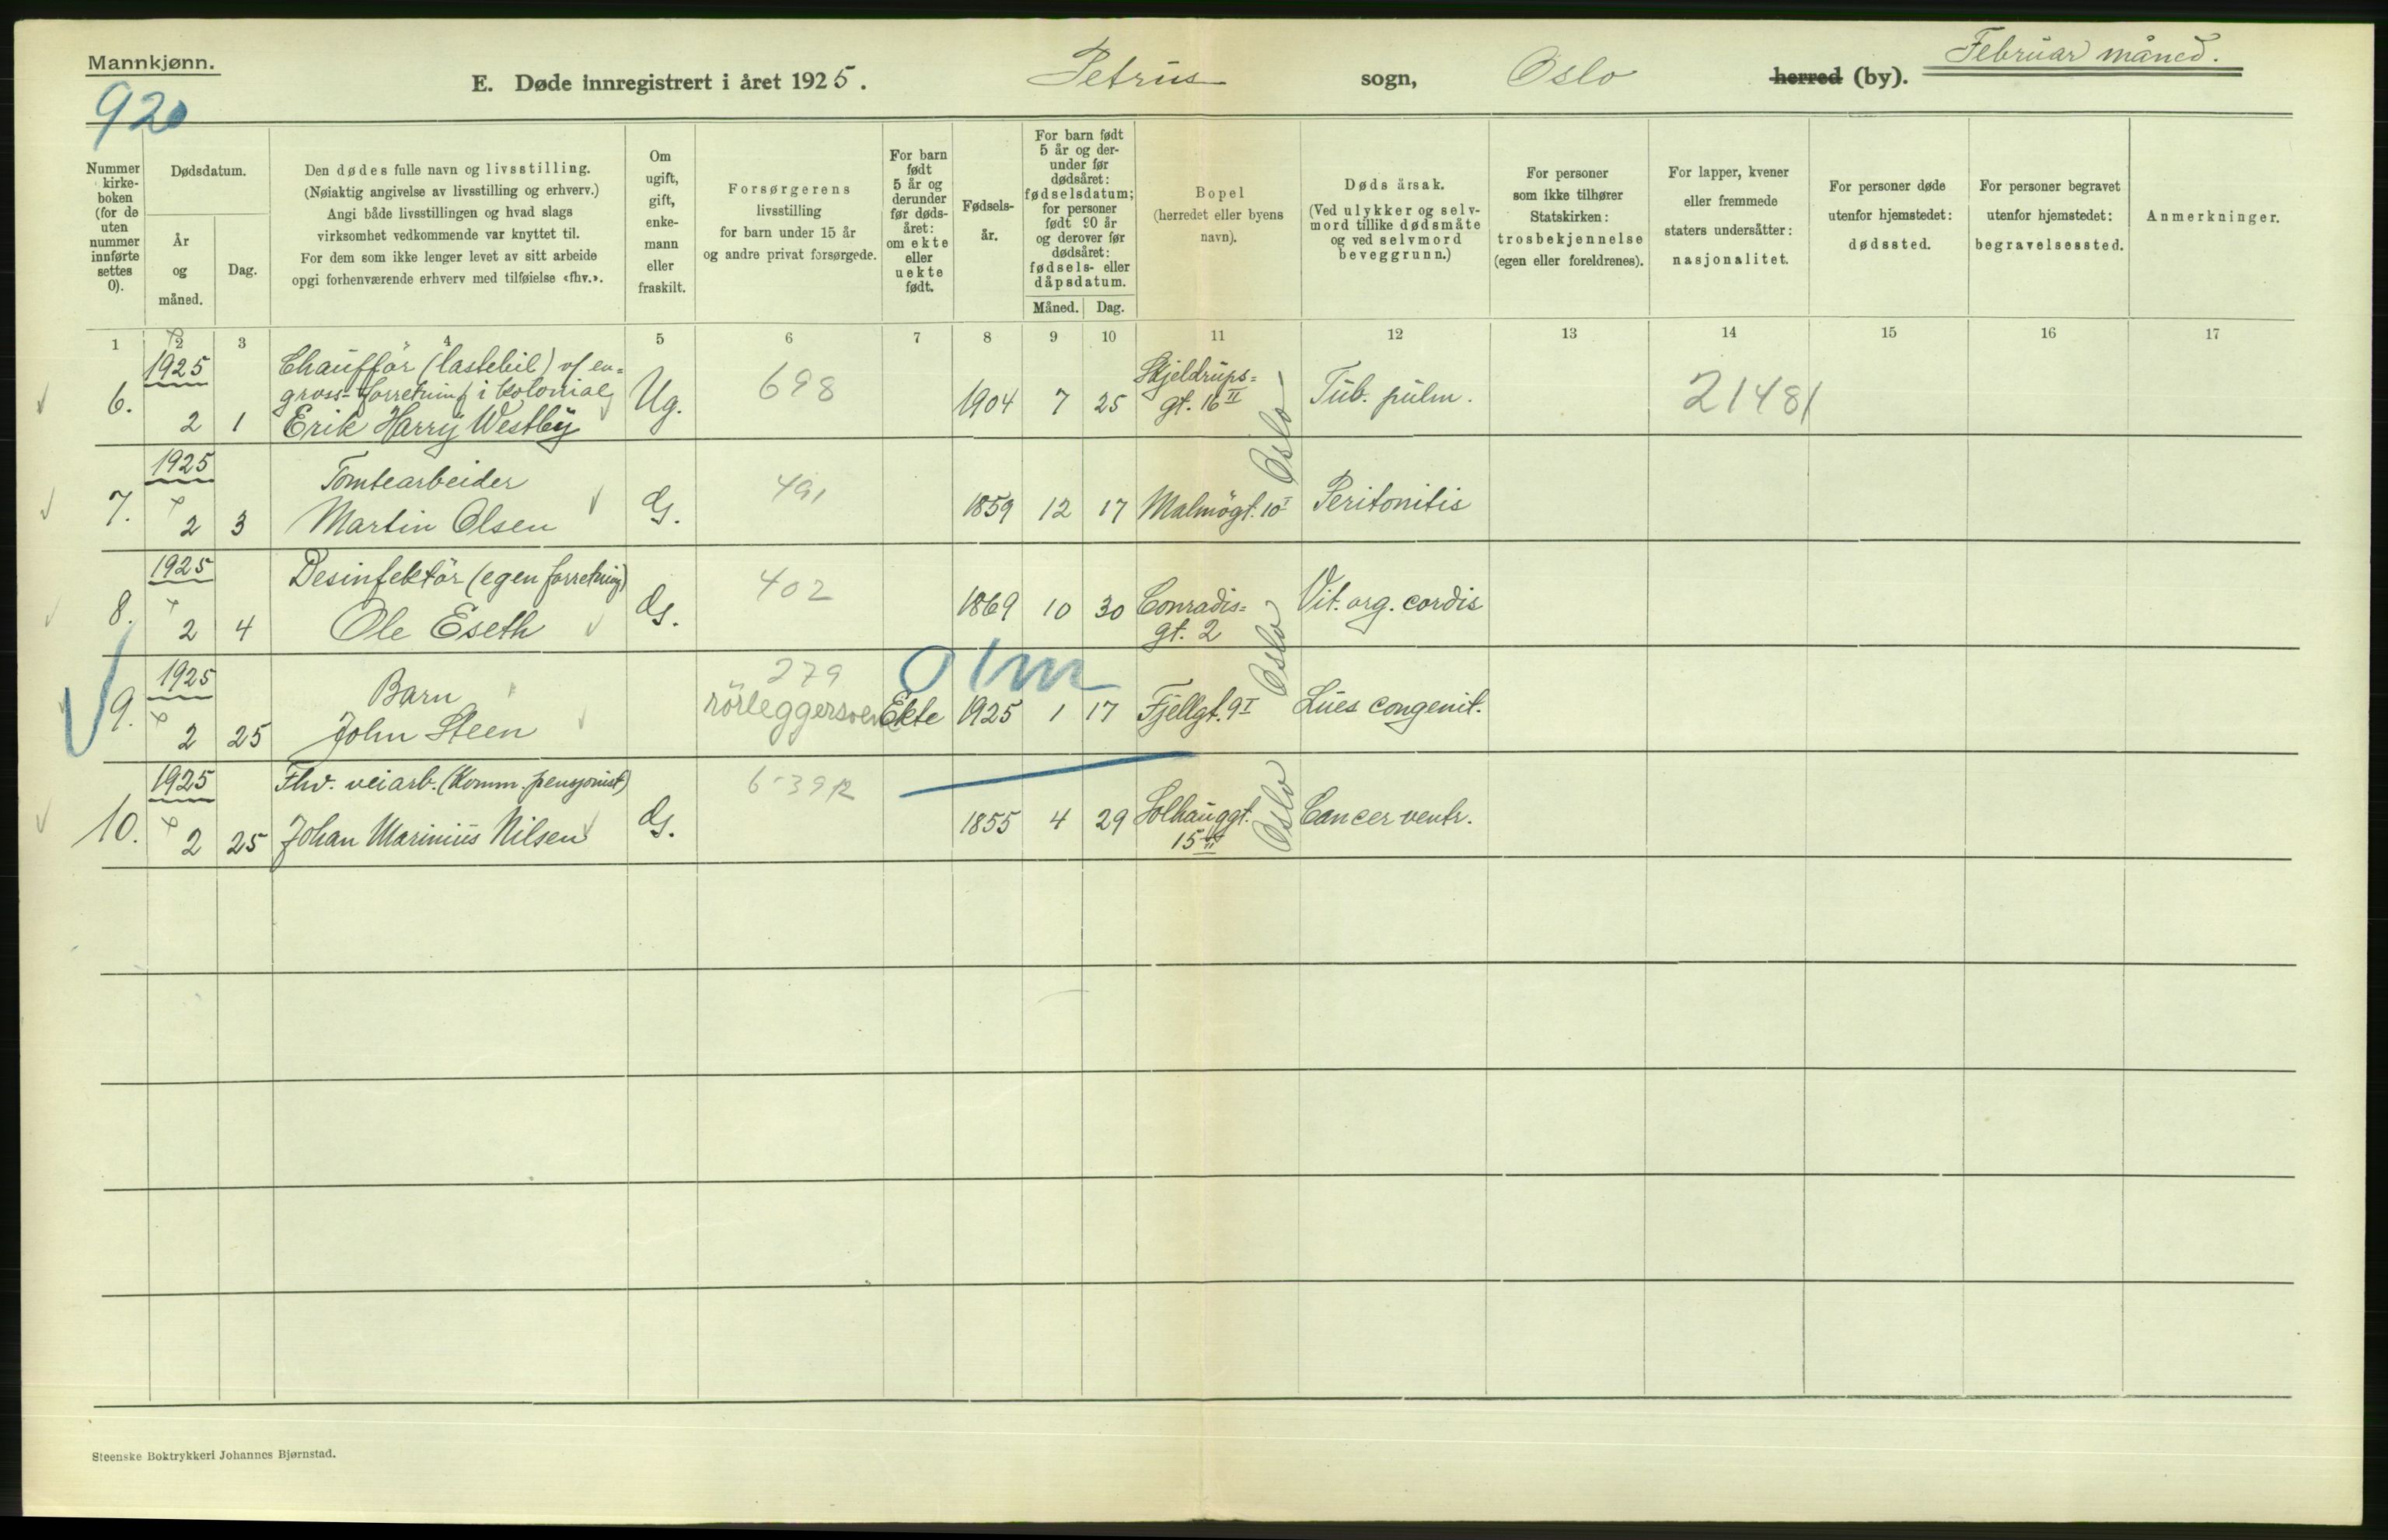 Mannkjønn.
E. Døde innregistrert i året 1925.
Petrus
sogn,
Oslo
herred (by).
Februar måned.
920
Nummer
kirke-
boken
(for de
uten
nummer
innførte
settes
0).
Dødsdatum.
År
og
måned.
Dag.
Den dødes fulle navn og livsstilling.
(Nøiaktig angivelse av livsstilling og erhverv.)
Angi både livsstillingen og hvad slags
virksomhet vedkommende var knyttet til.
For dem som ikke lenger levet av sitt arbeide
opgi forhenværende erhverv med tilføielse «fhv.».
Om
ugift,
gift,
enke-
mann
eller
fraskilt.
Forsørgerens
livsstilling
for barn under 15 år
og andre privat forsørgede.
For barn
født
5 år og
derunder
før døds-
året:
om ekte
eller
uekte
født.
Fødsels-
år.
For barn født
5 år og der-
under før
dødsåret:
fødselsdatum;
for personer
født 90 år
og derover før
dødsåret:
fødsels- eller
dåpsdatum.
Måned.
Dag.
Bopel
(herredet eller byens
navn).
Dødsårsak.
(Ved ulykker og selv-
mord tillike dødsmåte
og ved selvmord
beveggrunn.)
For personer
som ikke tilhører
Statskirken:
trosbekjennelse
(egen eller foreldrenes).
For lapper, kvener
eller fremmede
staters undersåtter:
nasjonalitet.
For personer døde
utenfor hjemstedet:
dødssted.
For personer begravet
utenfor hjemstedet:
begravelsessted.
Anmerkninger.
1 2 3 4 5 6 7 8 9 10 11 12 13 14 15 16 17
1925 Chauffør (lastebil) v/ en=
gross-forretning i kolonial
6. 2 1 Erik Harry Westby Ug. 698 1904 7 25 Skjeldrups=
gt. 16 II Oslo Tub. pulm. 21481
1925 Tomtearbeider
7. 2 3 Martin Olsen G. 491 1859 12 17 Malmøgt. 10 I Peritonitis
1925 Desinfektør (egen forretning)
8. 2 4 Ole Eseth G. 402 1869 10 30 Conradis=
gt. 2 Oslo Vit. org. cordis
1925 Barn 279 0 1m
9. 2 25 John Steen rörleggersven Ekte 1925 1 17 Fjellgt. 9 I Lues congenit.
1925 Fhv. veiarb. (Komm. pensjonist)
10. 2 25 Johan Marinius Nilsen G. 6-39 R 1855 4 29 Solhauggt.
15 II Oslo Cancer ventr.
Steenske Boktrykkeri Johannes Bjørnstad.